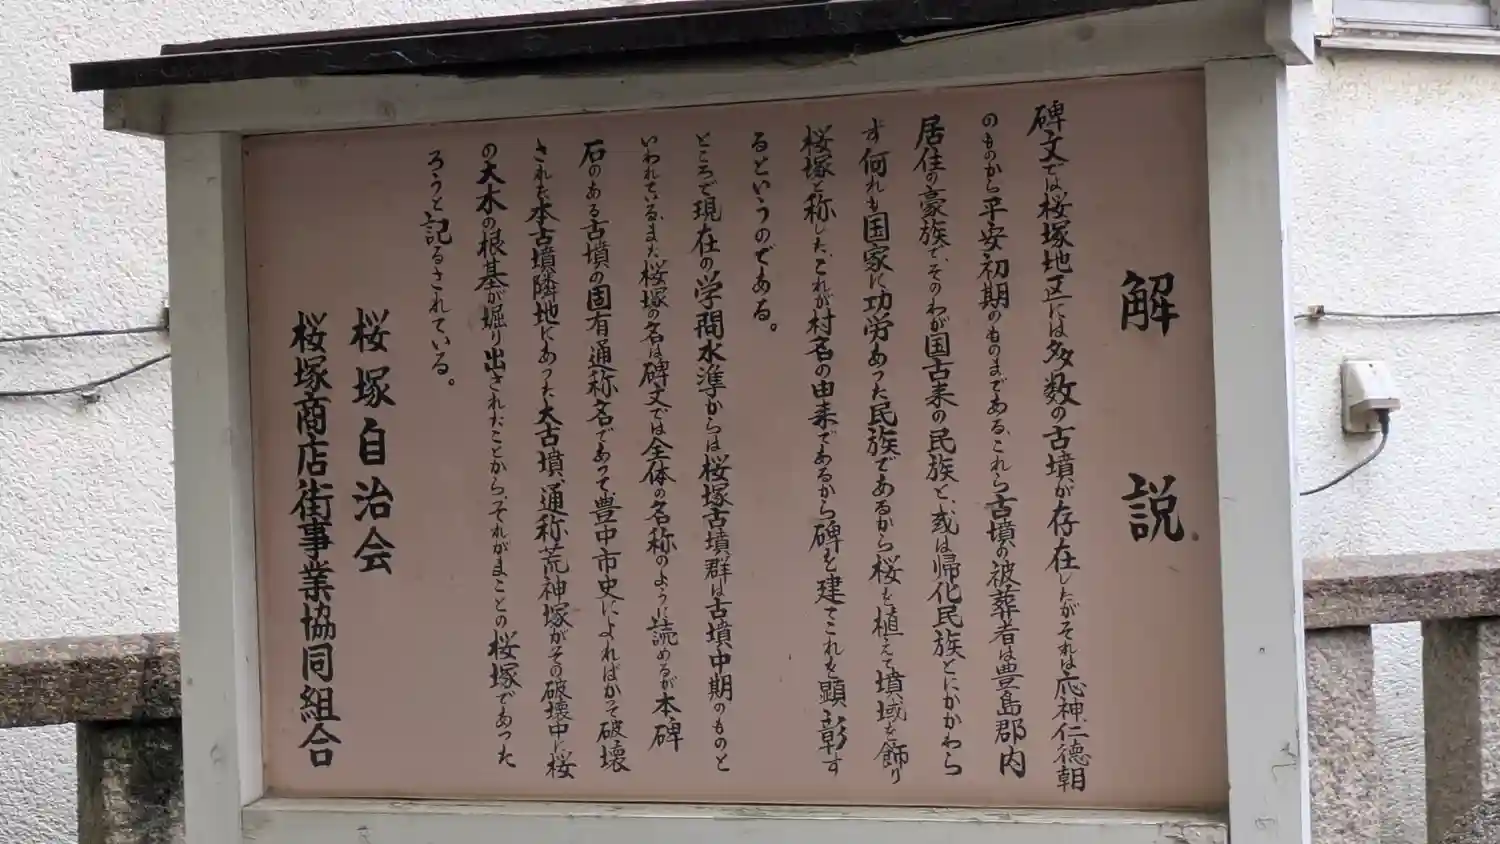 解説
碑文では桜塚地区には多数の古墳が存在したがそれは応神、仁徳朝
のものから平安初期のものまである、これら古墳の被葬者は豊島郡内
居住の豪族で、そのわが国古来の民族と、或は帰化民族とにかかわら
ず何れも国家に功労あった民族であるから桜を植えて墳域を飾り
桜塚と称した、これが村名の由来であるから碑を建てこれを顕彰す
るというのである。
ところで現在の学問水準からは桜塚古墳群は古墳中期のものと
いわれている、また桜塚の名は碑文では全体の名称のように読めるが本碑
石のある古墳の固有通称名であって豊中市史によればかって破壊
された本古墳隣地にあった大古墳、通称荒神塚がその破壊中に桜
の大木の根基が堀り出されたことから、それがまことの桜塚であった
ろうと記るされている。
桜塚自治会
桜塚商店街事業協同組合